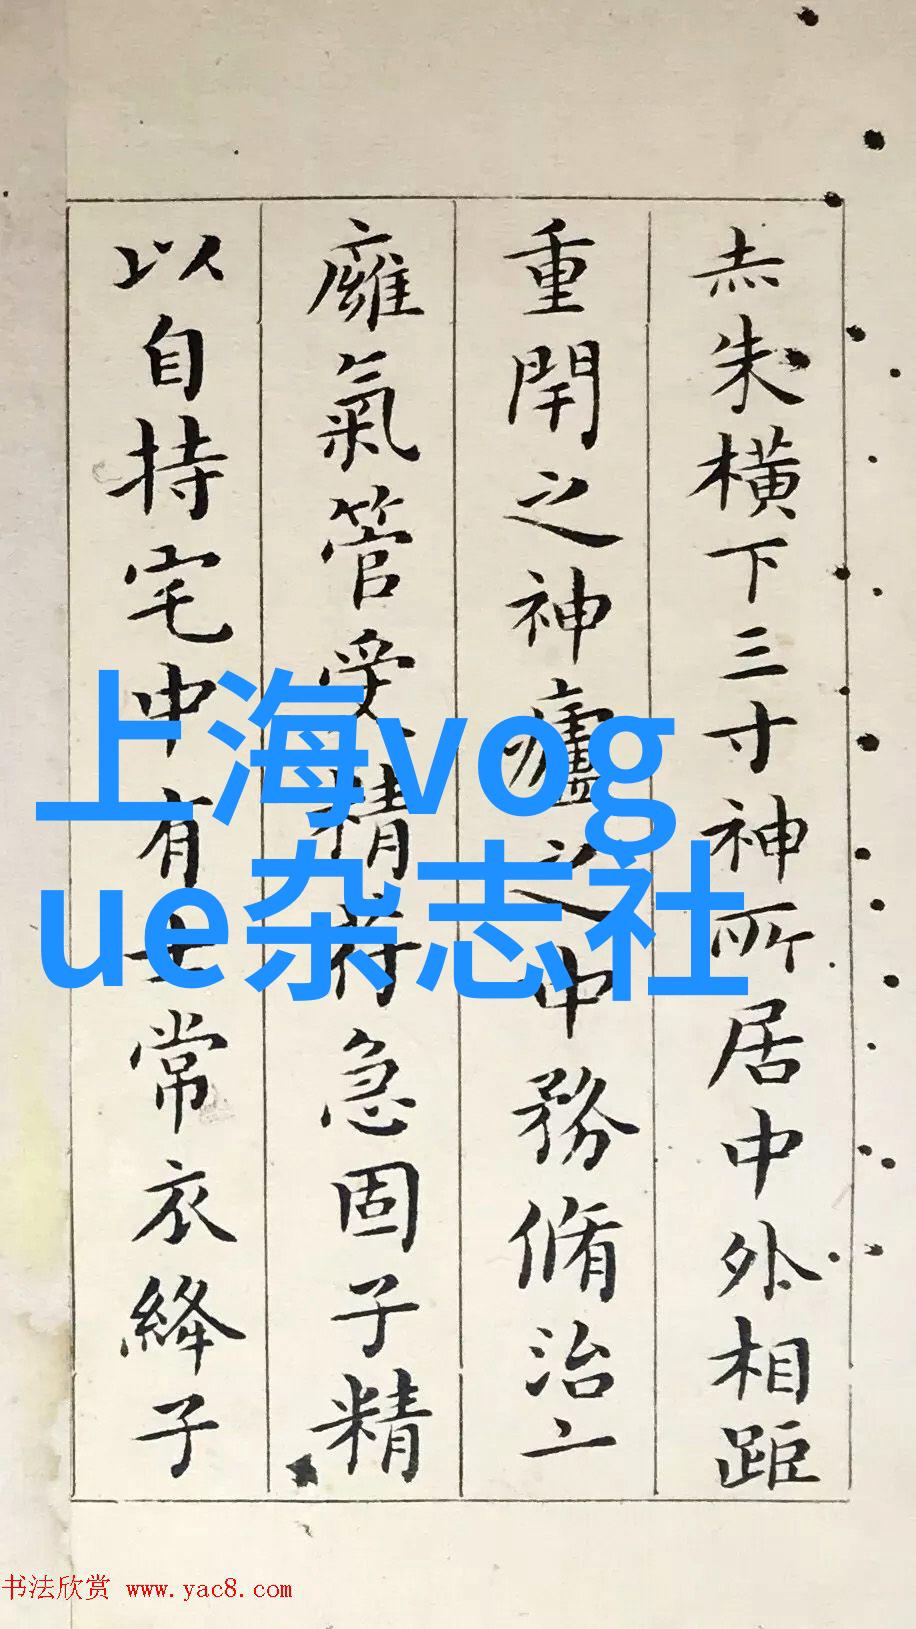 赤朱横下三寸神所居中外相距
重閇之神廬之中務脩治
廱氣管受精符急固子精
以自持宅中有士常衣絳子
上海vog
ue杂志社
书法欣赏 www.yac8.com